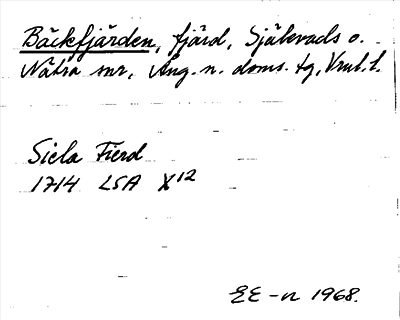 Bäckfjärden, fjärd, Själevads o.
Nätra snr, Ång. n. doms. tg, Vnrl. l.
Siela Fierd
1714 LSA X12
EE-n 1968.